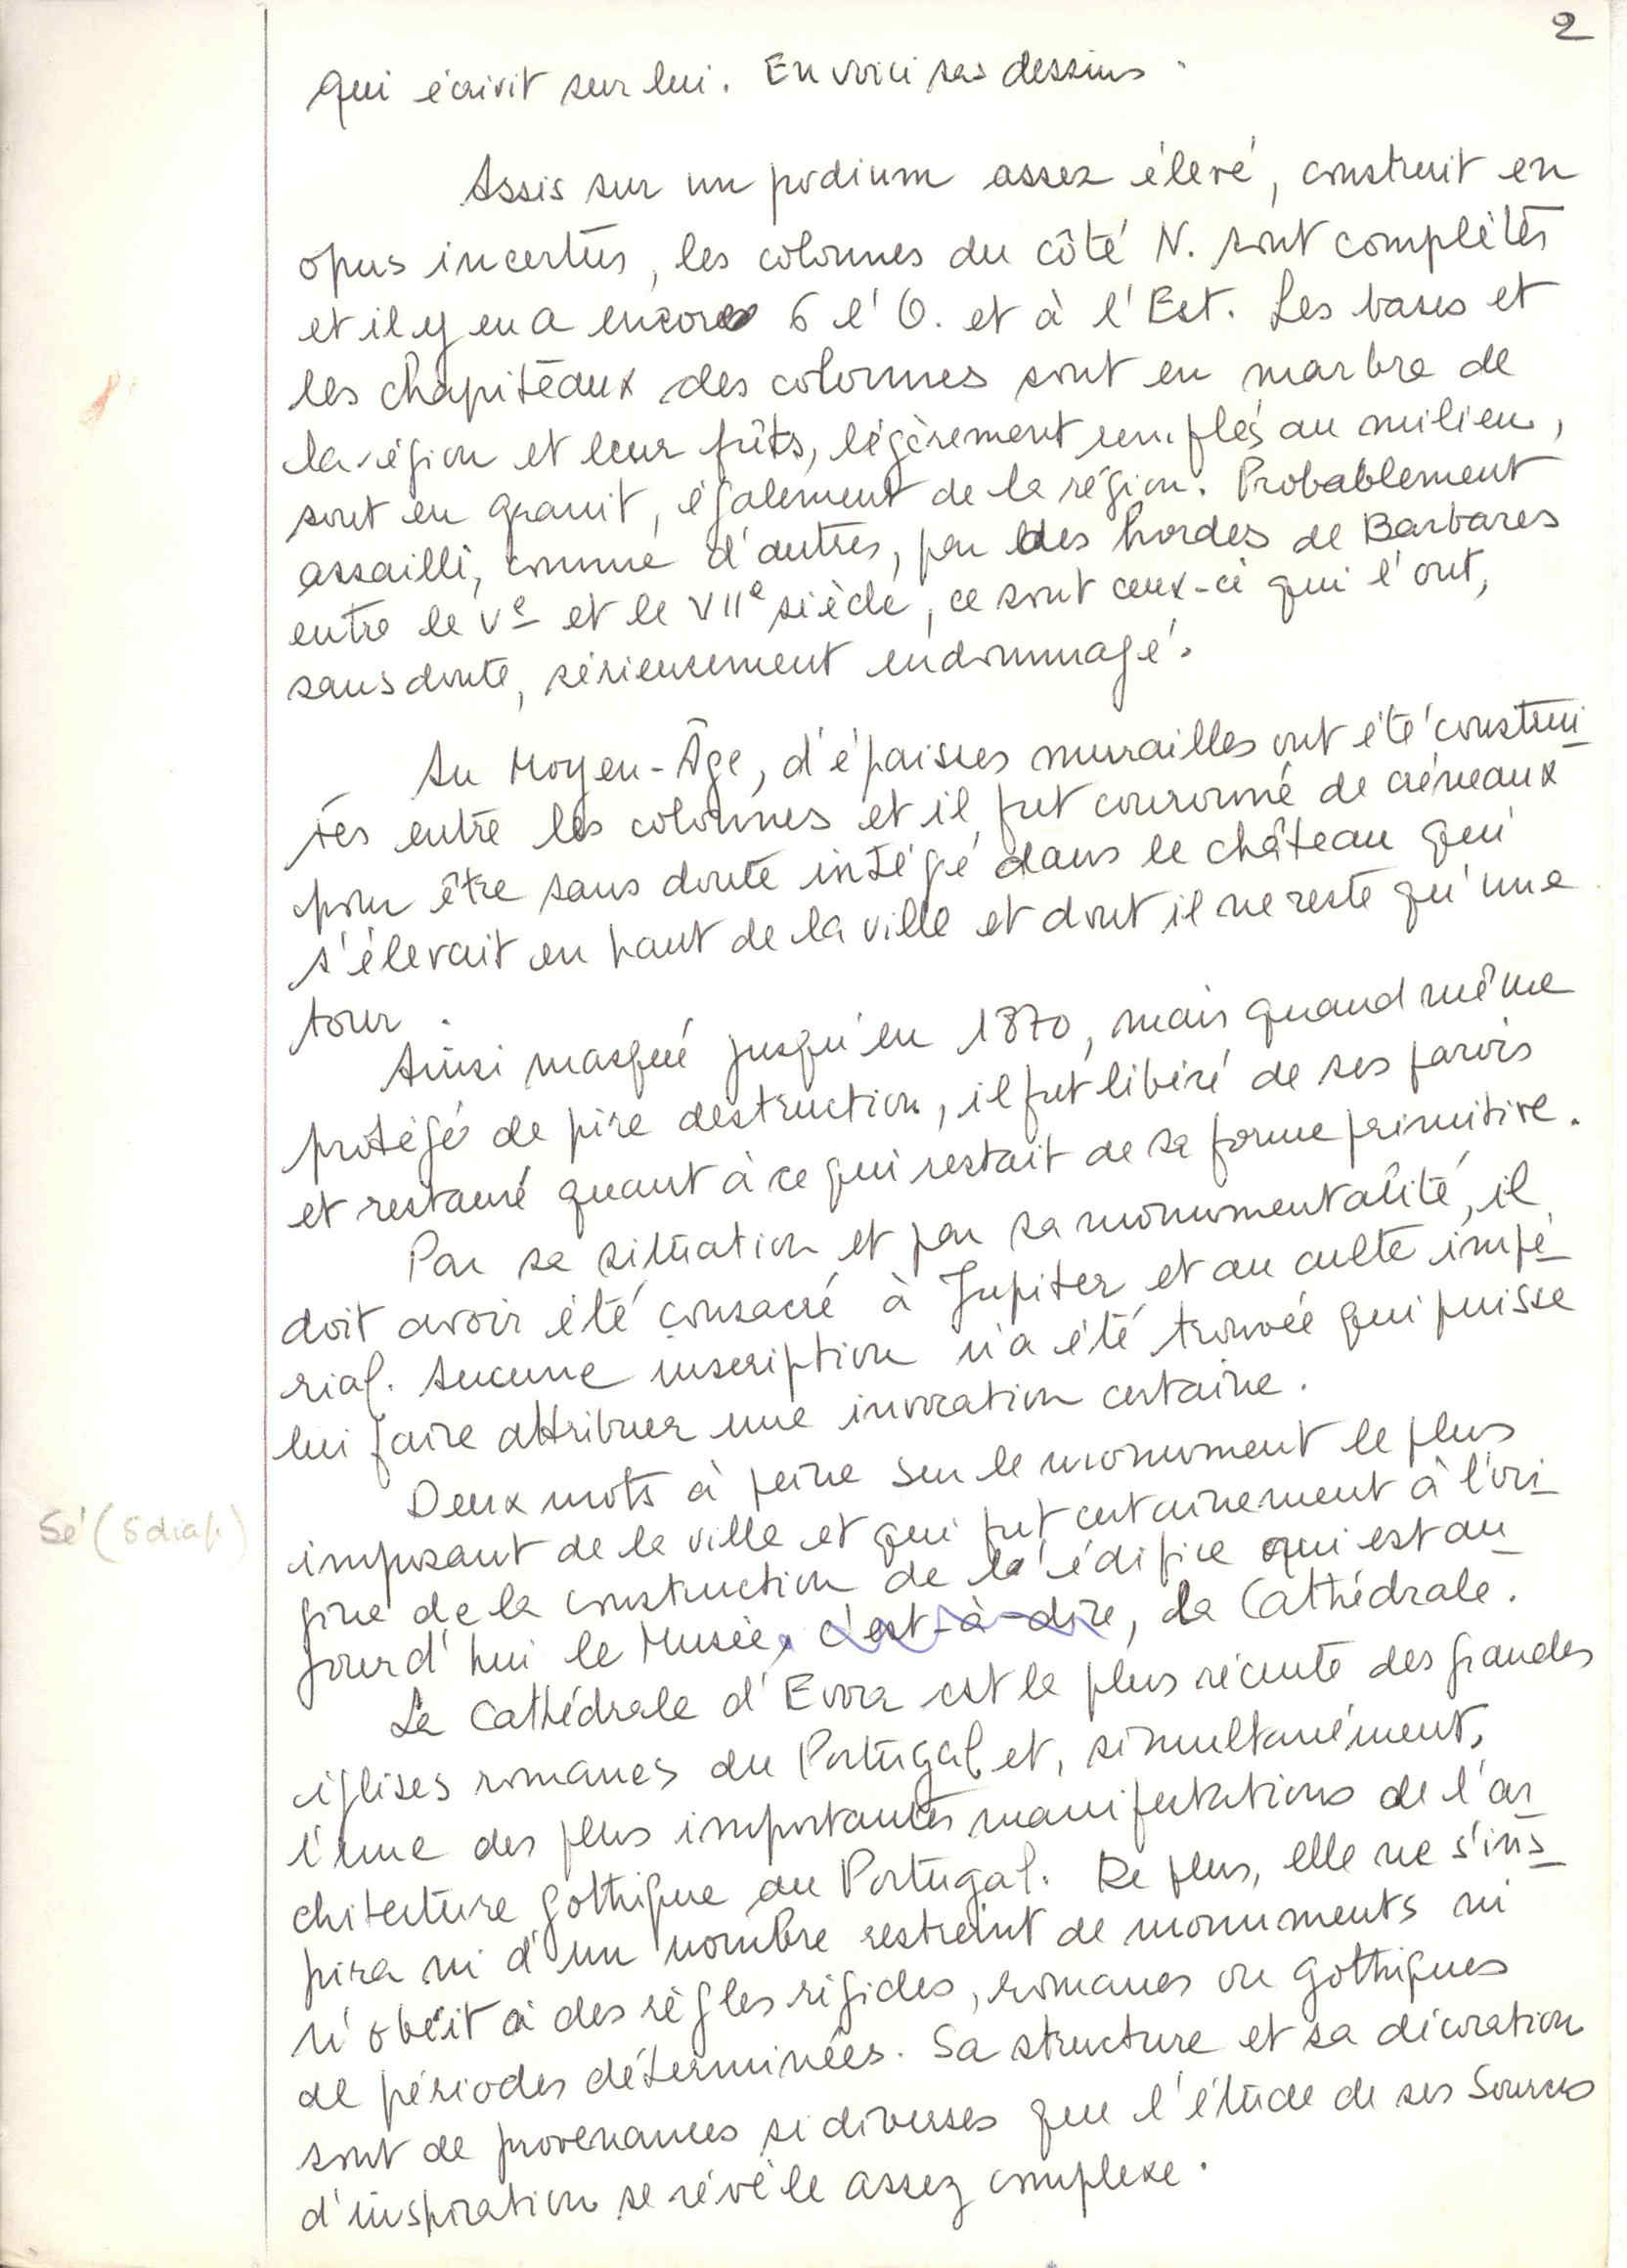 2
qui écrivit sur lui. En voici ses dessins.
Assis sur un podium assez élevé, construit en
opus incertus, les colonnes du côté N. sont complètes
et il y en a encore 6 l'O. et à l'Est. Les bases et
les chapiteaux des colonnes sont en marbre de
la région et leur fûts, légèrement renflés au milieu,
sont en granit, également de la région. Probablement
assailli, comme d'autres, par des hordes de Barbares
entre le Ve et le VIIe siècle, ce sont ceux-ci qui l'ont,
sans doute, sérieusement endommagé.
Au Moyen-Âge, d'épaisses murailles ont été construi
tes entre les colonnes et il fut couronné de créneaux
pour être sans doute intégé dans le château qui
s'élevait en haut de la ville et dont il ne reste qu'une
tour.
Ainsi masqué jusqu'en 1870, mais quand même
protégé de pire destruction, il fut libéré de ses parois
et restauré quant à ce qui restait de sa forme primitive.
Par sa situation et par sa monumentalité, il
doit avoir été consacré à Jupiter et au culte impé-
rial. Aucune inscription n'a été trouvée qui puisse
lui faire attribuer une invocation certaine.
Deux mots à peine sur le monument le plus
Sé (5 diap)
imposant de la ville et qui fut certainement à l'ori-
gine de la construction de l'édifice qui est au-
jourd'hui le Musée, c'est-à-dire, la Cathédrale.
La Cathédrale d'Evora est la plus récente des grandes
églises romanes du Portugal et, simultanément,
l'une des plus importantes manifestations de l'ar
chitecture gothique au Portugal. De plus, elle ne s'ins-
pira ni d'un nombre restreint de monuments ni
n'obéit à des règles rigides, romanes ou gothiques
de périodes déterminées. Sa structure et sa décoration
sont de provenances si diverses que l'étude de ses Sources
d'inspiration se révèle assez complexe.